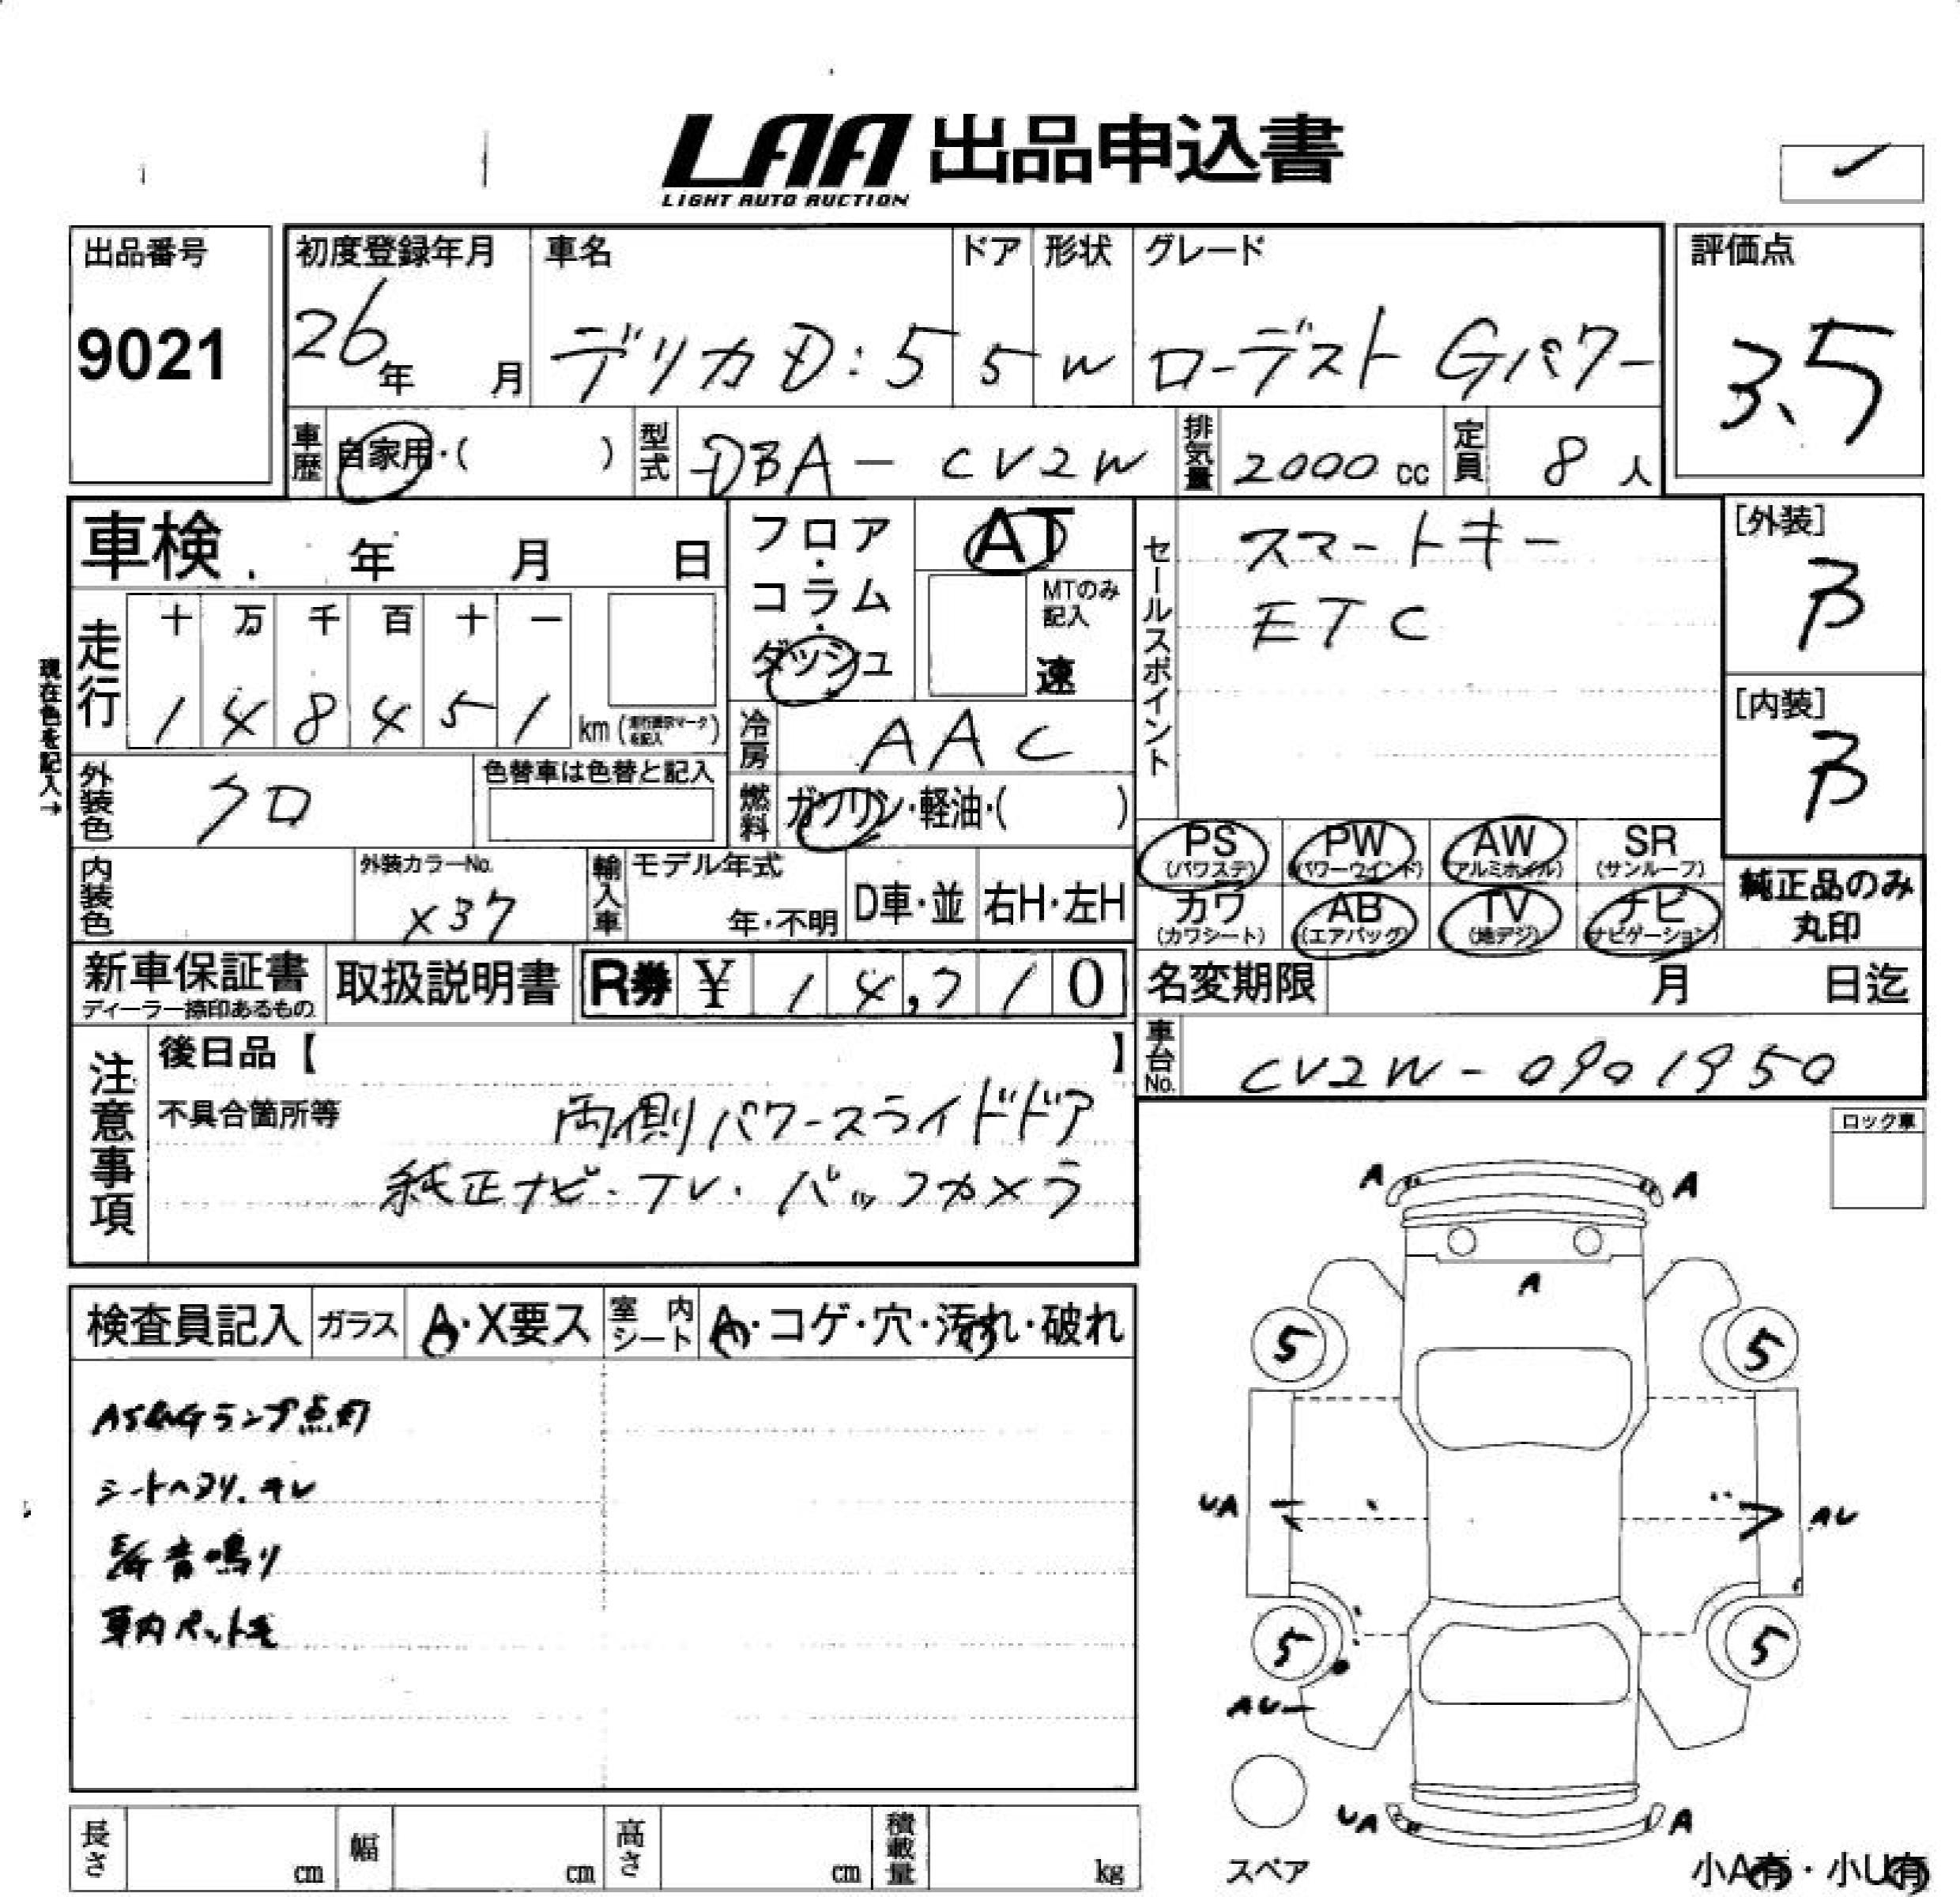 LAA 出品申込書
LIGHT AUTO AUCTION
出品番号
9021
初度登録年月
26年 月
車名
デリカD:5
ドア
5
形状
W
グレード
ローデスト Gパワー
評価点
3.5
車歴 自家用・( )
型式 DBA-CV2W
排気量 2000 cc
定員 8 人
車検 年 月 日
フロア・コラム・ダッシュ
AT
MTのみ記入
速
セールスポイント
スマートキー
ETC
[外装]
B
[内装]
B
現在色を記入→
走行
十 万 千 百 十 一
1 4 8 4 5 1 km (走行表示マークを記入)
冷房 AAC
外装色 クロ
色替車は色替と記入
燃料 ガソリン・軽油・( )
内装色
外装カラーNo.
X37
輸入車
モデル年式
年・不明
D車・並
右H・左H
PS (パワステ)
PW (パワーウインド)
AW (アルミホイル)
SR (サンルーフ)
カワ (カワシート)
AB (エアバッグ)
TV (地デジ)
ナビ (ナビゲーション)
純正品のみ丸印
新車保証書
ディーラー捺印あるもの
取扱説明書
R券 ¥ 14,710
名変期限 月 日迄
車台No. CV2W-0901950
注意事項
後日品【 】
不具合箇所等
両側パワースライドドア
純正ナビ・TV・バックカメラ
ロック車
検査員記入
ガラス A・X要ス
室内シート A・コゲ・穴・汚れ・破れ
ランプ点灯
シートヘタリ、キレ
音鳴り
車内ペット毛
A A
A
5 5
UA AU
5 5
AU
UA A
スペア
小A有・小U有
長さ cm
幅 cm
高さ cm
積載量 kg